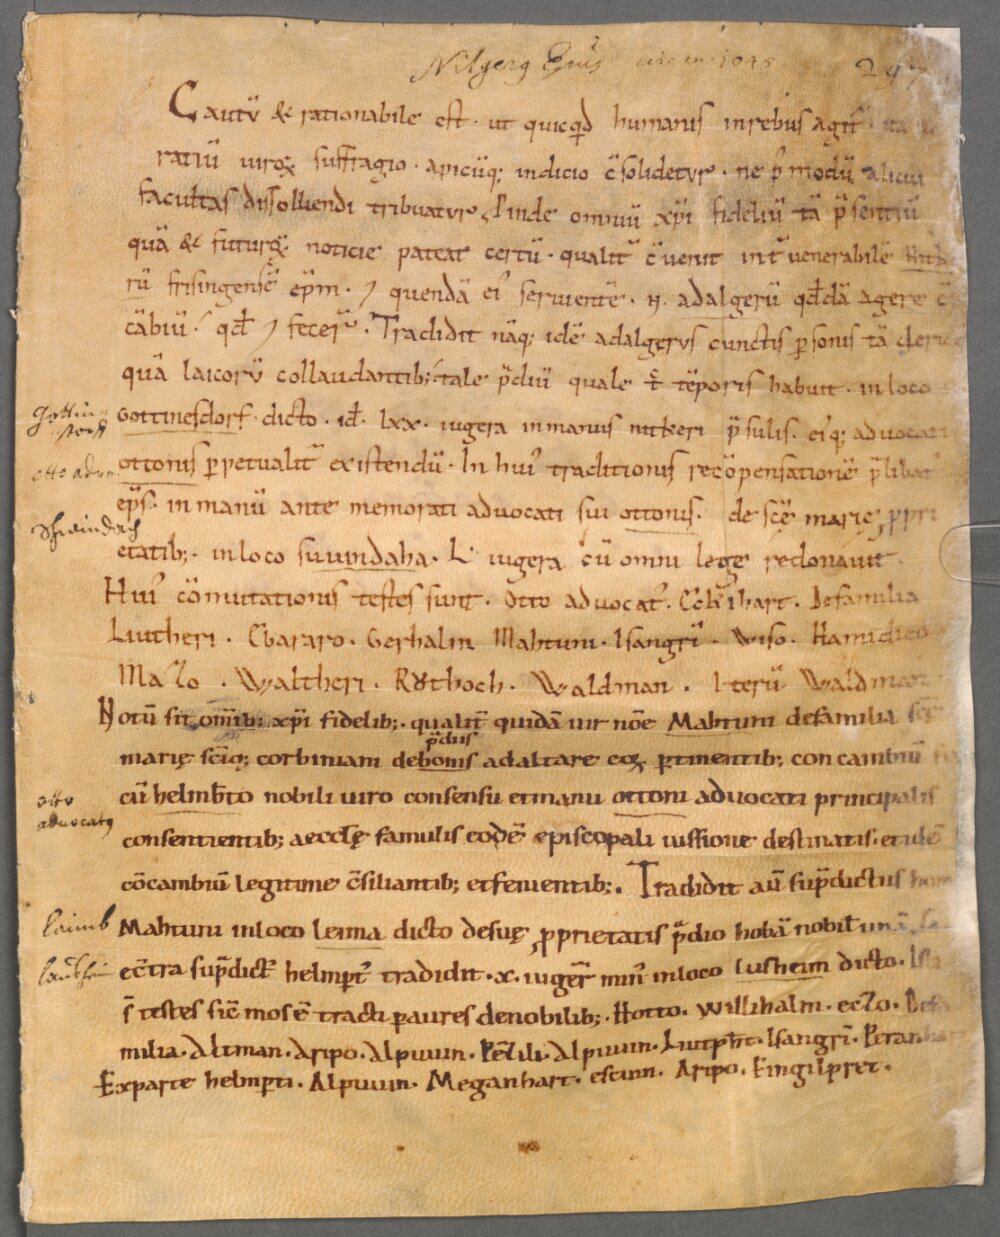 Nitgerg Epus circa 1045 297
Cautū & rationabile est · ut quicqd humanis in rebus agit̄
ratiū viroꝝ suffragio · apicūq; indicio c̄solidetur · ne p̄ modū alicui
facultas dissolvendi tribuatur · Proinde omniū xp̄i fideliū tā p̄sentiū
quā & futuroꝝ noticie pateat certū · qualit̄ c̄venit int̄ venerabilē Nitke
rū frisingensē ēpm · ⁊ quendā ei' servientē · N · adalgerū qđdā agere c̄
cābiū · qđ ⁊ fecer̄ · Tradidit nāq; idē adalgerus cunctis p̱sonis tā cleric
quā laicorū collaudantib; tale p̄diū quale t̄ tēporis habuit · in loco
Gottin dorff
Gottinesdorf dicto · id · lxx · iugera in manus nitkeri p̄sulis · ei'q; advocati
otto advo
ottonis p̱petualit̄ existendū · In hui' traditionis recōpensationē p̄libat'
ep̄s · in manū ante memorati advocati sui ottonis · de scē marię ꝓpri
Schwindach
etatib; · in loco suuindaha · L · iugera cū omni lege redonavit ·
Hui' cōmutationis testes sunt · Otto advocat' · Ekkihart · De familia
Liutheri · Ebararo · Gerhalm Mahtuni · Isangrī · Wiso · Hamidieo
Mazo · Waltheri · Rŏthoch · Waldman · Iterū Waldman
Notū sit omīb; xp̄i fidelib; · qualit̄ quidā vir nōe Mahtuni de familia sc̄ę
p̄dīis
marię sc̄iq; corbiniani de bonis ad altare eoꝝ p̱tinentib; concambiū
cū helmb̄to nobili viro consensu et manu ottoni advocati principalis
otto advocatꝰ
consentientib; aecclę famulis eodē episcopali iussione destinatis · et idē
cōcambiū legitime c̄siliantib; et ferientib; · Tradidit aū sup̄dictus hom
laimb
Mahtuni in loco leima dicto de suę ꝓprietatis p̄dio hobā nobil̄ unā
lausheim
ec̄tra sup̄dict̄ helmp̱t̄ tradidit · x · iuger̄ min' in loco lusheim dicto · Isti
s̄ testes sic̄ mos ē tracti p̱ aures de nobilib; · Hotto · Willihalm · eczo · De fa
milia · Altman · Aripo · Alpuuin · Pezili · Alpuuin · Liutph̄t · Isangrī · Peranhart
Ex parte helmp̱ti · Alpuuin · Meganhart · escuin · Aripo · Engilpret ·